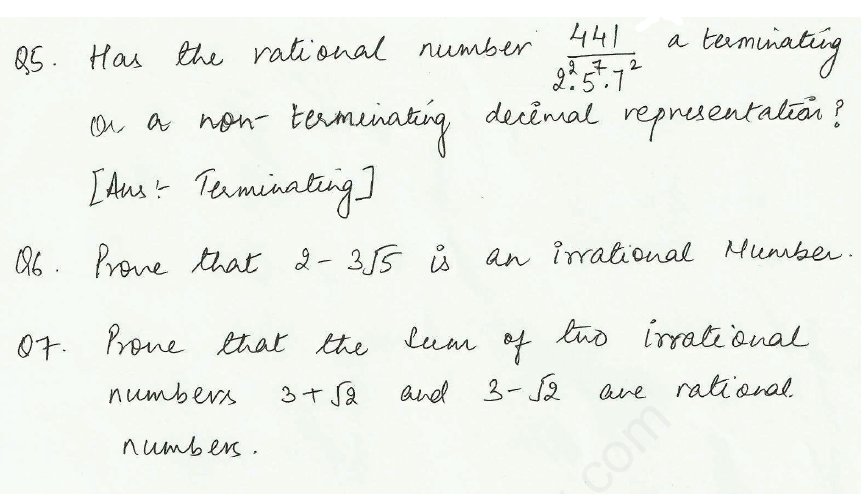 Q5. Has the rational number 441/2².5⁷.7² a terminating
or a non-terminating decimal representation?
[Ans :- Terminating]
Q6. Prove that 2-3√5 is an irrational Number.
Q7. Prove that the sum of two irrational
numbers 3+√2 and 3-√2 are rational.
numbers.
.com